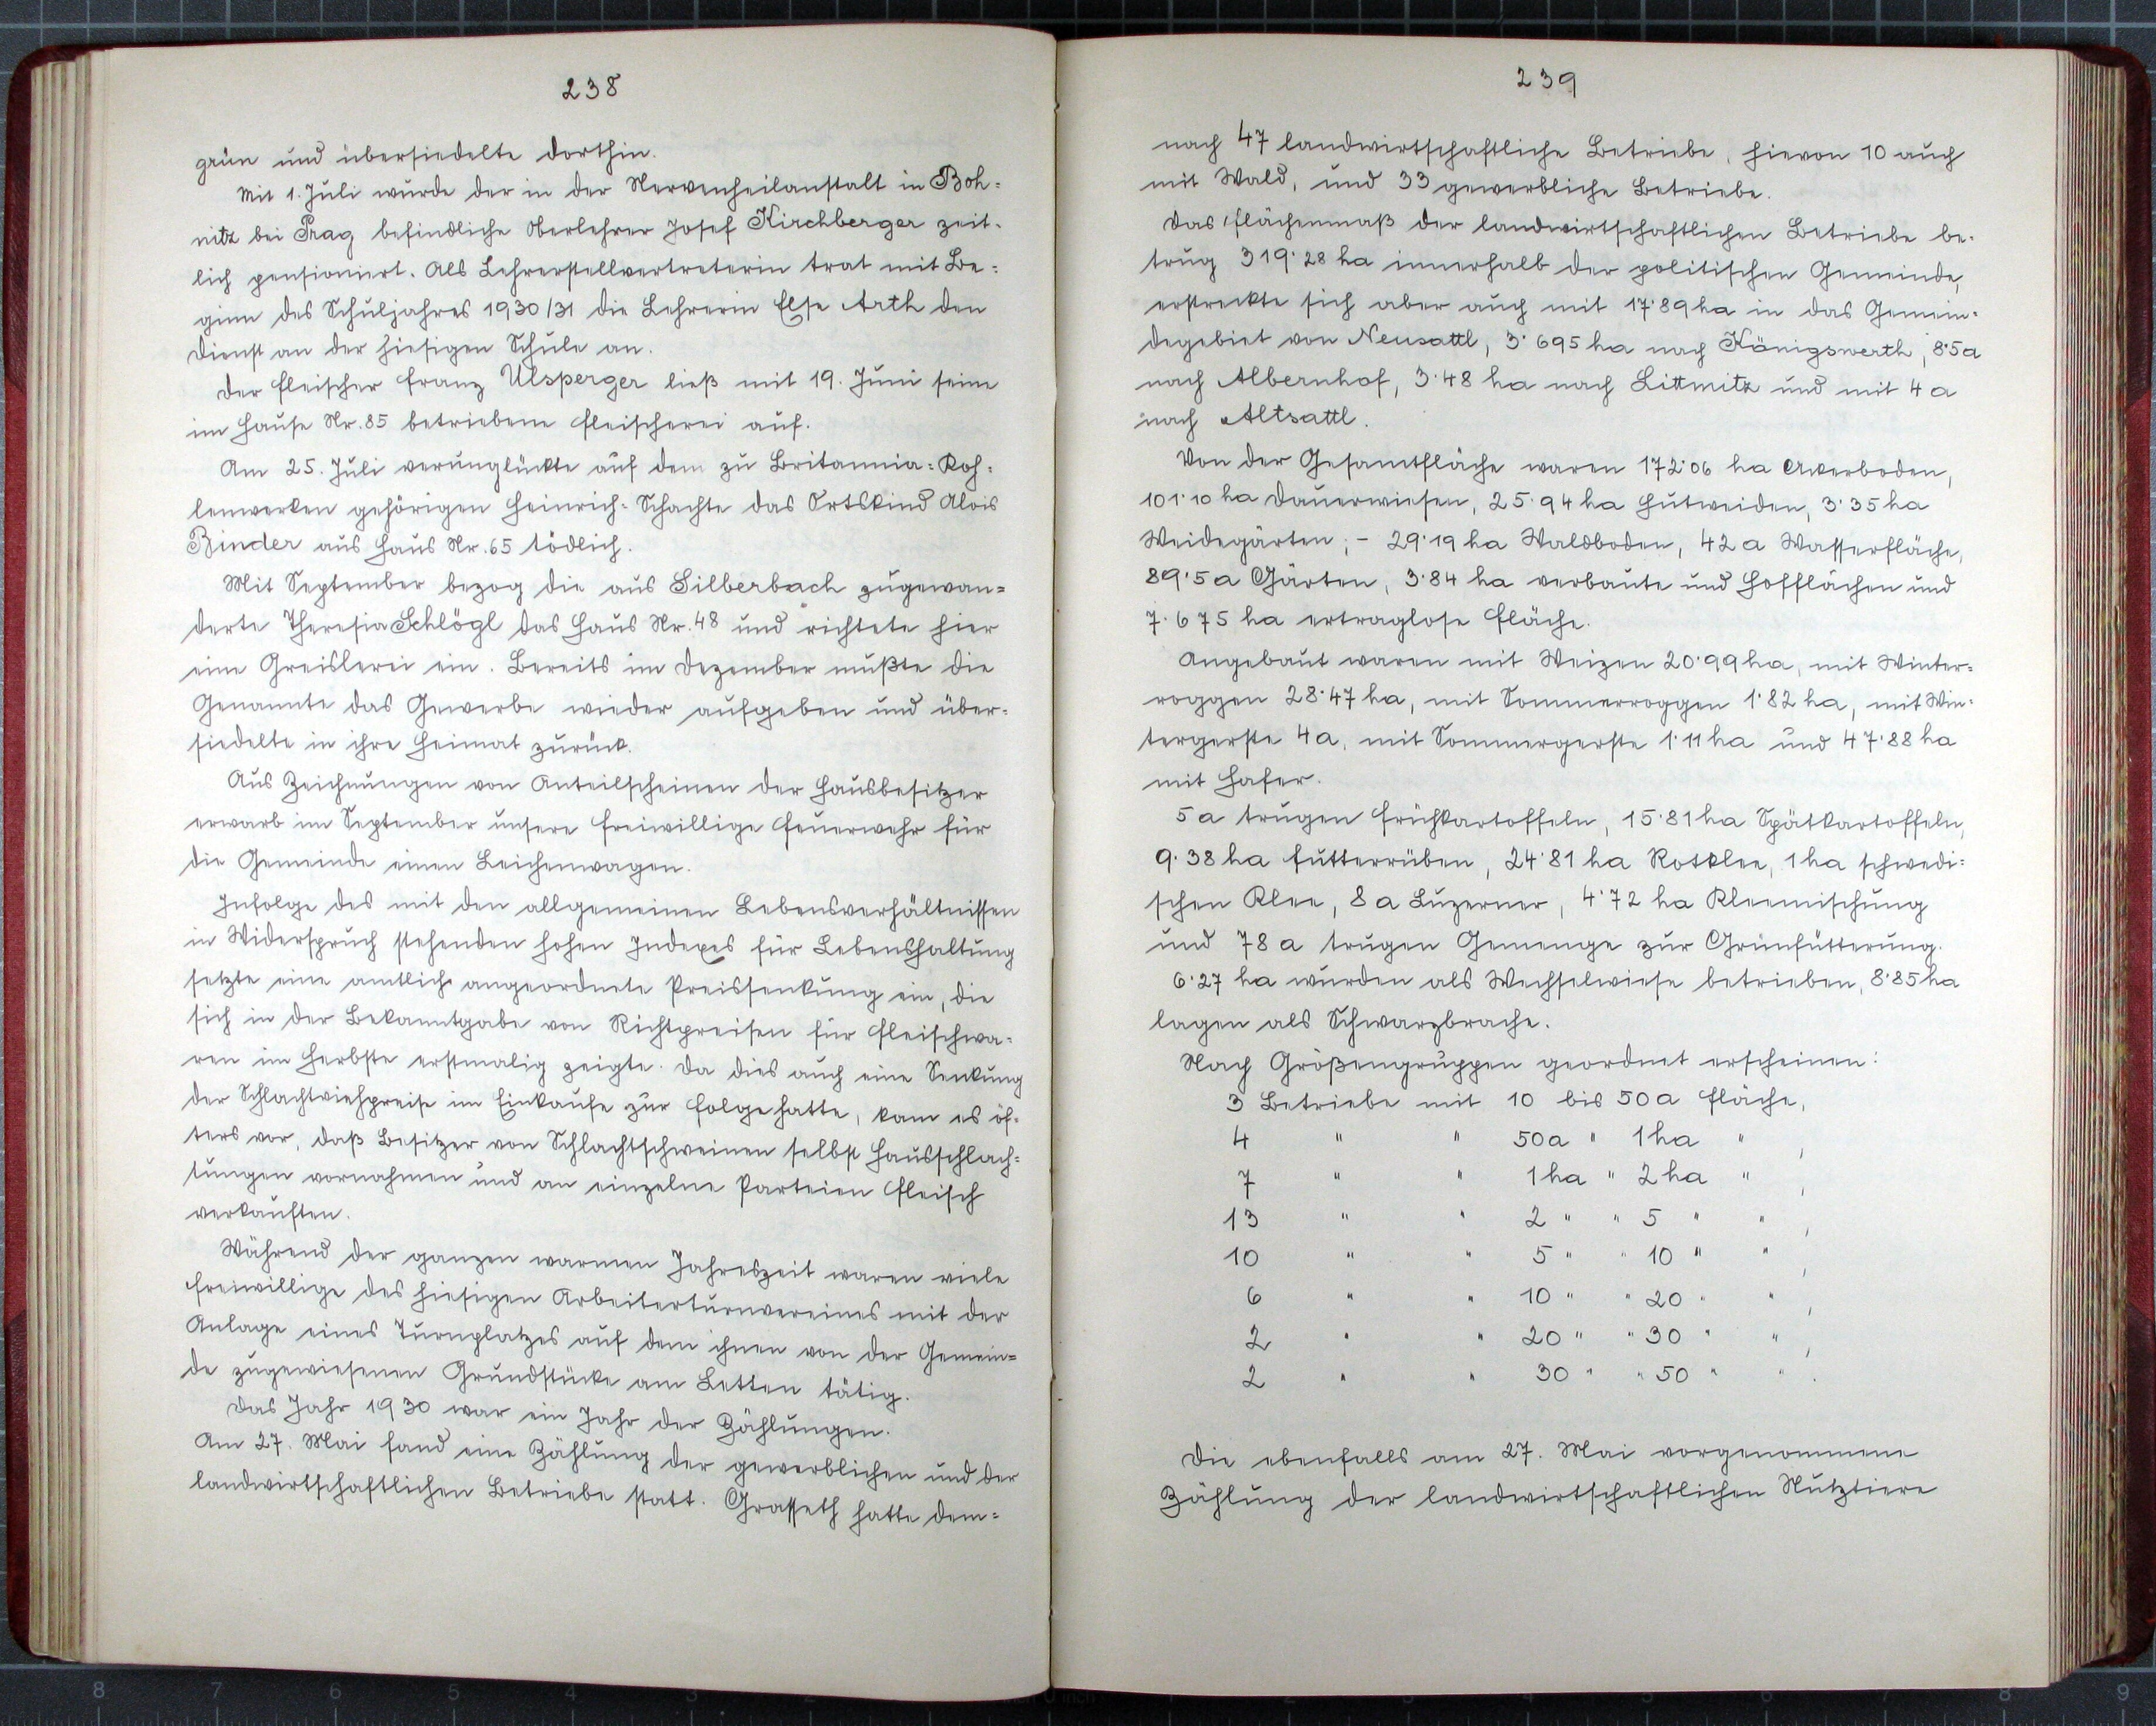 238
grün und übersiedelte dorthin.
Mit 1. Juli wurde der in der Nervenheilanstalt in Boh=
nitz bei Prag befindliche Oberlehrer Josef Kirchberger zeit=
lich pensioniert. Als Lehrerstellvertreterin trat mit Be=
ginn des Schuljahres 1930/31 die Lehrerin Else Arth den
Dienst an der hiesigen Schule an.
Der Fleischer Franz Ulsperger ließ mit 19. Juni seine
im Hause Nr. 85 betriebene Fleischerei auf.
Am 25. Juli verunglückte auf dem zu Britannia=Koh=
lenwerken gehörigen Heinrich=Schachte das Ortskind Alois
Binder aus Haus Nr. 65 tödlich.
Mit September bezog die aus Silberbach zugewan=
derte Theresia Schlögl das Haus Nr. 48 und richtete hier
eine Greislerei ein. Bereits im Dezember mußte die
Genannte das Gewerbe wieder aufgeben und über=
siedelte in ihre Heimat zurück.
Aus Zeichnungen von Anteilscheinen der Hausbesitzer
erwarb im September unsere freiwillige Feuerwehr für
die Gemeinde einen Leichenwagen.
Infolge des mit den allgemeinen Lebensverhältnissen
in Widerspruch stehenden hohen Indexes für Lebenshaltung
setzte eine amtlich angeordnete Preissenkung ein, die
sich in der Bekanntgabe von Richtpreisen für Fleischwa=
ren im Herbste erstmalig zeigte. Da dies auch eine Senkung
der Schlachtviehpreise im Einkaufe zur Folge hatte, kam es öf=
ters vor, daß Besitzer von Schlachtschweinen selbst Hausschlach=
tungen vornahmen und an einzelne Parteien Fleisch
verkauften.
Während der ganzen warmen Jahreszeit waren viele
Freiwillige des hiesigen Arbeiterturnvereines mit der
Anlage eines Turnplatzes auf dem ihnen von der Gemein=
de zugewiesenen Grundstücke am Letten tätig.
Das Jahr 1930 war ein Jahr der Zählungen.
Am 27. Mai fand eine Zählung der gewerblichen und der
landwirtschaftlichen Betriebe statt. Grasseth hatte dem=
239
nach 47 landwirtschaftliche Betriebe, hievon 10 auch
mit Wald, und 33 gewerbliche Betriebe.
Das Flächenmaß der landwirtschaftlichen Betriebe be=
trug 319·28 ha innerhalb der politischen Gemeinde,
erstreckte sich aber auch mit 17·89 ha in das Gemein=
degebiet von Neusattl, 3·695 ha nach Königswerth, 8·5 a
nach Albernhof, 3·48 ha nach Littmitz und mit 4 a
nach Altsattl.
Von der Gesamtfläche waren 172·06 ha Ackerboden,
101·10 ha Dauerwiesen, 25·94 ha Hutweiden, 3·35 ha
Weidegärten, - 29·19 ha Waldboden, 42 a Wasserfläche,
89·5 a Gärten, 3·84 ha verbaute und Hofflächen und
7·675 ha ertraglose Fläche.
Angebaut waren mit Weizen 20·99 ha, mit Winter=
roggen 28·47 ha, mit Sommerroggen 1·82 ha, mit Win=
tergerste 4 a, mit Sommergerste 1·11 ha und 47·88 ha
mit Hafer.
5 a trugen Frühkartoffeln, 15·81 ha Spätkartoffeln,
9·38 ha Futterrüben, 24·81 ha Rotklee, 1 ha schwedi=
schen Klee, 8 a Luzerner, 4·72 ha Kleemischung
und 78 a trugen Gemenge zur Grünfütterung.
6·27 ha wurden als Wechselwiese betrieben, 8·85 ha
lagen als Schwarzbrache.
Nach Größengruppen geordnet erscheinen:
3 Betriebe mit 10 bis 50 a Fläche,
4 " " 50 a " 1 ha " ,
7 " " 1 ha " 2 ha " ,
13 " " 2 " " 5 " " ,
10 " " 5 " " 10 " " ,
6 " " 10 " " 20 " " ,
2 " " 20 " " 30 " " ,
2 " " 30 " " 50 " " .
Die ebenfalls am 27. Mai vorgenommene
Zählung der landwirtschaftlichen Nutztiere